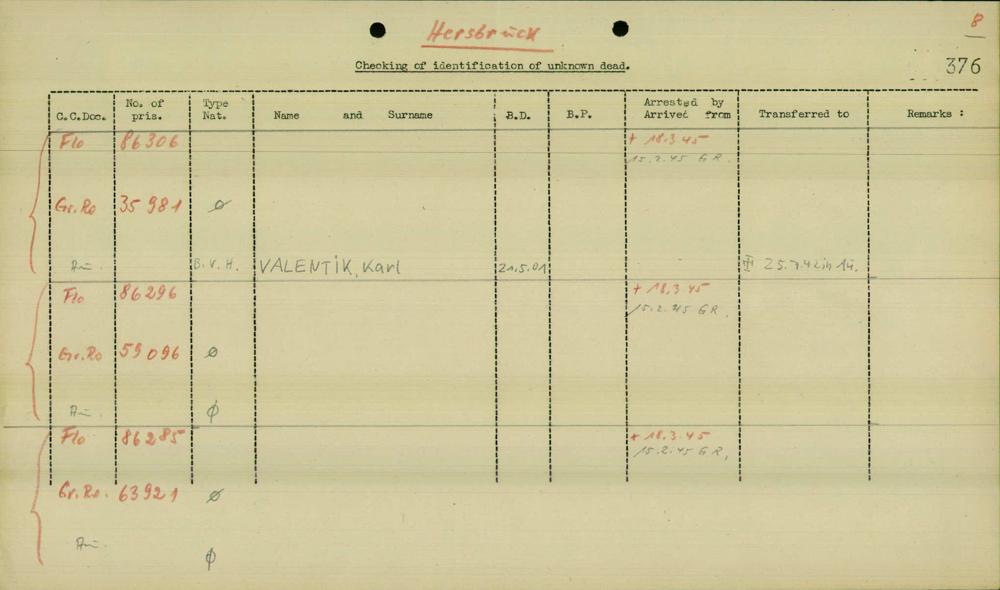 Hersbrück
8
Checking of identification of unknown dead.
376
C.C.Doc. No. of pris. Type Nat. Name and Surname B.D. B.P. Arrested by Arrived from Transferred to Remarks :
Flo 86306 + 18.3.45
15.2.45 GR.
Gr.Ro 35 981 ø
B.V.H. VALENTiK, Karl 21.5.01
Flo 86296 + 18.3.45
15.2.45 GR.
Gr.Ro 59096 ø
ø
Flo 86285 + 18.3.45
15.2.45 GR.
Gr.Ro. 63921 ø
ø